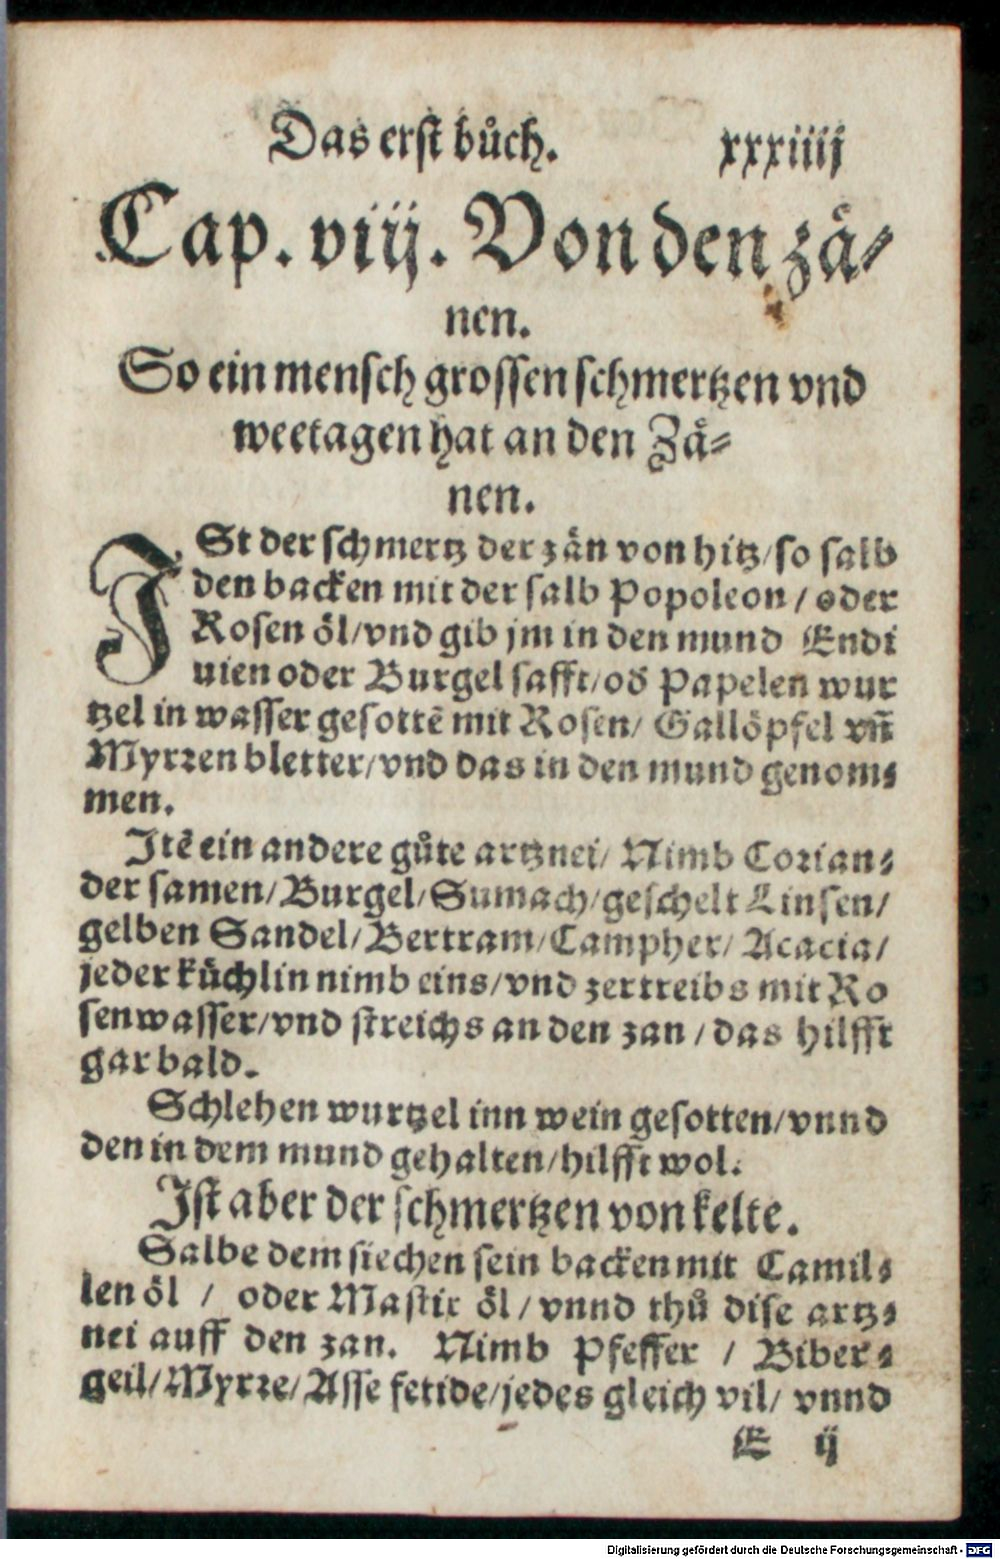 Das erst bůch. xxxiiij
Cap. viij. Von den zå⸗
nen.
So ein mensch grossen schmertzen vnd
weetagen hat an den Zå⸗
nen.
ISt der schmertz der zån von hitz/so salb
den backen mit der salb Popoleon / oder
Rosen öl/vnd gib jm in den mund Endi
uien oder Burgel safft/od̕ Papelen wur
tzel in wasser gesottē mit Rosen/ Gallöpfel vñ
Myrzen bletter/vnd das in den mund genom⸗
men.
Jtē ein andere gůte artznei/ Nimb Corian⸗
der samen/Burgel/Sumach/geschelt Linsen/
gelben Sandel/Bertram/Campher/ Acacia/
jeder küchlin nimb eins/vnd zertreibs mit Ro
senwasser/vnd streichs an den zan / das hilfft
gar bald.
Schlehen wurtzel inn wein gesotten/vnnd
den in dem mund gehalten/hilfft wol.
Jst aber der schmertzen von kelte.
Salbe dem siechen sein backen mit Camil⸗
len öl / oder Mastix öl / vnnd thů dise artz⸗
nei auff den zan. Nimb Pfeffer / Biber⸗
geil/Myrre/Asse fetide/jedes gleich vil/ vnnd
E ij
Digitalisierung gefördert durch die Deutsche Forschungsgemeinschaft - DFG